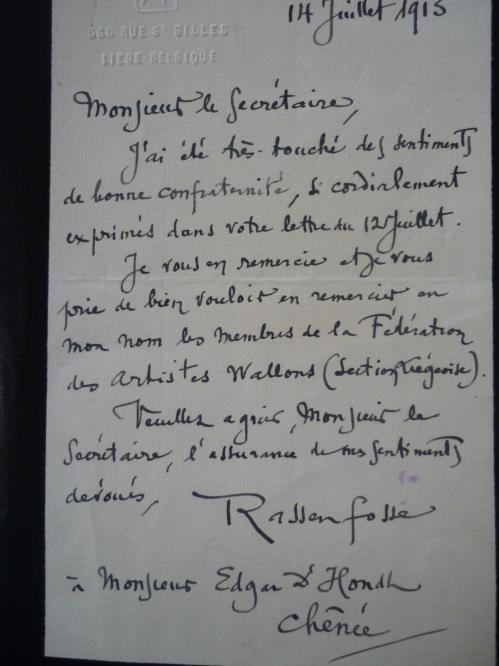 366 RUE St GILLES
LIEGE-BELGIQUE
14 Juillet 1913
Monsieur le Secrétaire,
J'ai été très-touché des sentiments
de bonne confraternité, si cordialement
exprimés dans votre lettre du 12 Juillet.
Je vous en remercie et je vous
prie de bien vouloir en remercier en
mon nom les membres de la Fédération
des Artistes Wallons (Section Liégeoise).
Veuillez agréer, Monsieur le
Secrétaire, l'assurance de mes sentiments
dévoués,
Rassenfosse
à Monsieur Edgar D'Hondt
Chênée